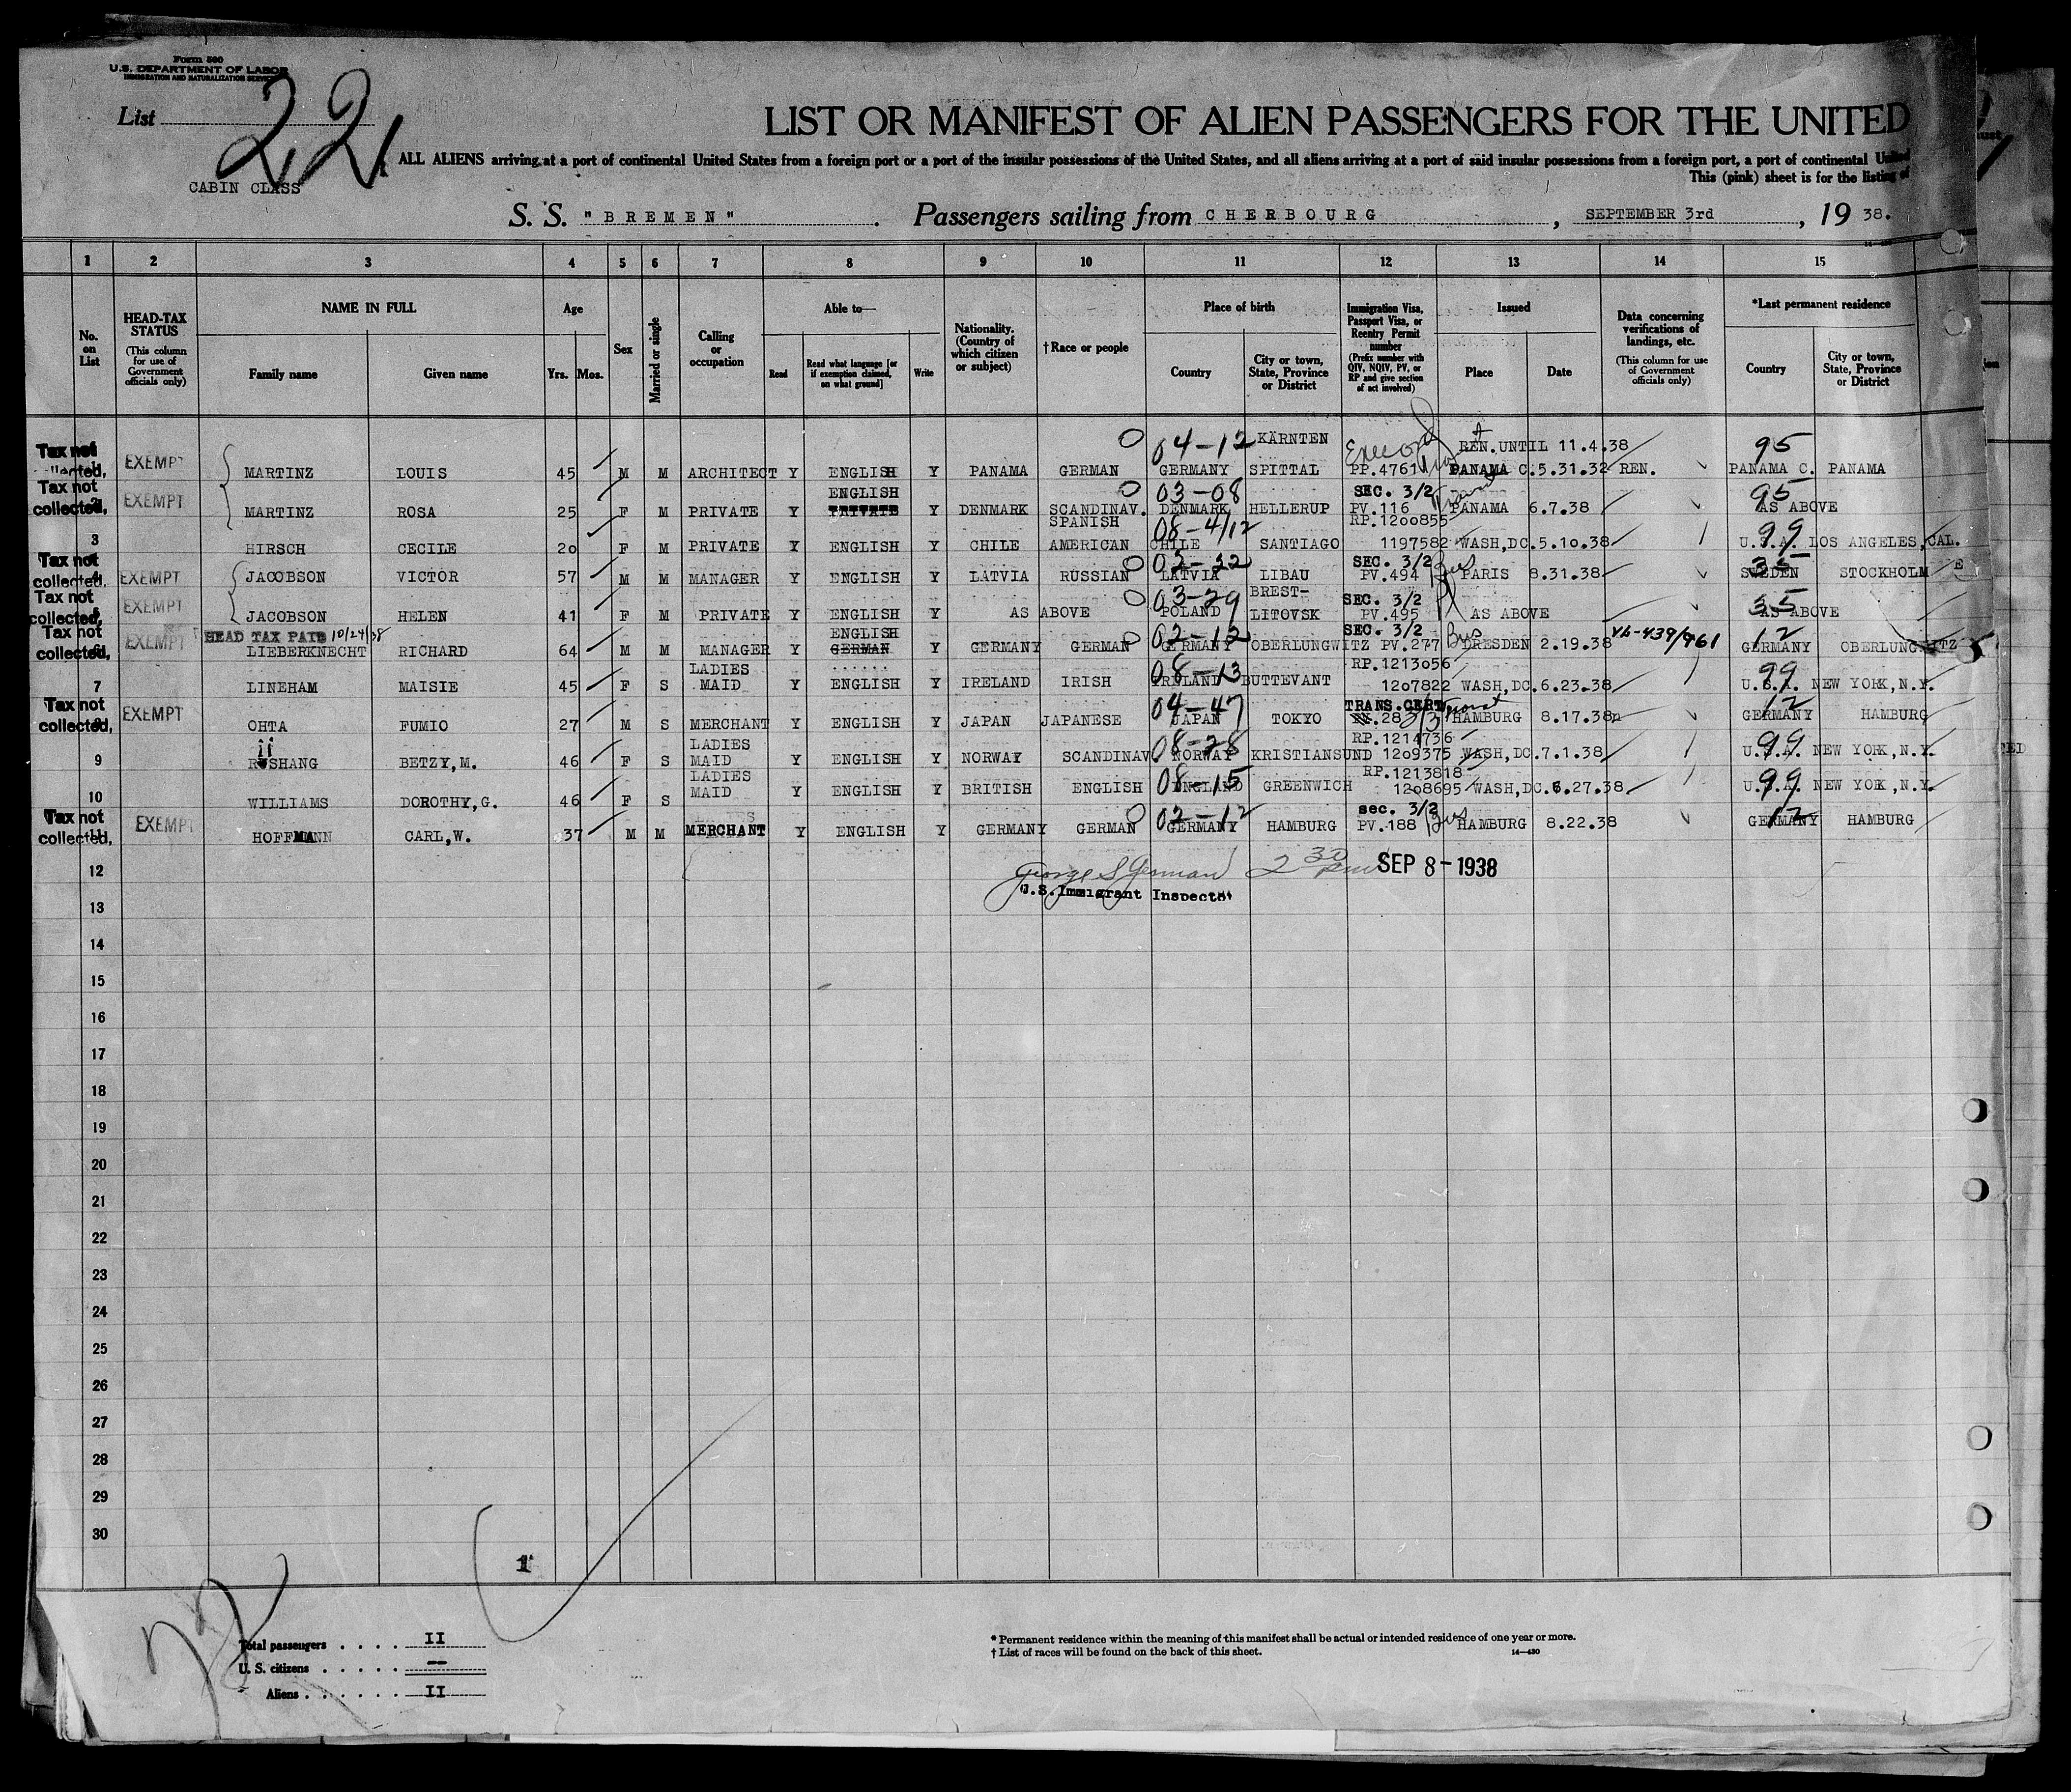 Form 500
U.S. DEPARTMENT OF LABOR
IMMIGRATION AND NATURALIZATION SERVICE
List 22
LIST OR MANIFEST OF ALIEN PASSENGERS FOR THE UNITED
ALL ALIENS arriving at a port of continental United States from a foreign port or a port of the insular possessions of the United States, and all aliens arriving at a port of said insular possessions from a foreign port, a port of continental United
CABIN CLASS
This (pink) sheet is for the listing of
S. S. "BREMEN" . Passengers sailing from CHERBOURG , SEPTEMBER 3rd , 19 38.
1 2 3 4 5 6 7 8 9 10 11 12 13 14 15
No. on List
HEAD-TAX STATUS (This column for use of Government officials only)
NAME IN FULL
Family name Given name
Age
Yrs. Mos.
Sex
Married or single
Calling or occupation
Able to—
Read Read what language [or if exemption claimed, on what ground] Write
Nationality. (Country of which citizen or subject)
† Race or people
Place of birth
Country City or town, State, Province or District
Immigration Visa, Passport Visa, or Reentry Permit number (Prefix number with QIV, NQIV, PV, or RP and give section of act involved)
Issued
Place Date
Data concerning verifications of landings, etc. (This column for use of Government officials only)
*Last permanent residence
Country City or town, State, Province or District
Tax not 04-12 KÄRNTEN REN.UNTIL 11.4.38 95
collected, EXEMPT MARTINZ LOUIS 45 M M ARCHITECT Y ENGLISH Y PANAMA GERMAN GERMANY SPITTAL PP.4761 PANAMA C.5.31.32 REN. PANAMA C. PANAMA
Tax not ENGLISH 03-08 SEC. 3/2 95
collected, EXEMPT MARTINZ ROSA 25 F M PRIVATE Y PRIVATE Y DENMARK SCANDINAV. DENMARK HELLERUP PV.116 PANAMA 6.7.38 AS ABOVE
SPANISH 08-4/12 RP.1200855 99
3 HIRSCH CECILE 20 F M PRIVATE Y ENGLISH Y CHILE AMERICAN CHILE SANTIAGO 1197582 WASH,DC.5.10.38 U.S.A. LOS ANGELES,CAL.
Tax not 02-22 SEC. 3/2 35
collected, 4 EXEMPT JACOBSON VICTOR 57 M M MANAGER Y ENGLISH Y LATVIA RUSSIAN LATVIA LIBAU PV.494 PARIS 8.31.38 SWEDEN STOCKHOLM
Tax not 03-29 BREST- SEC. 3/2 35
collected, 5 EXEMPT JACOBSON HELEN 41 F M PRIVATE Y ENGLISH Y AS ABOVE POLAND LITOVSK PV.495 AS ABOVE AS ABOVE
Tax not HEAD TAX PAID 10/24/38 ENGLISH 02-12 SEC. 3/2 12
collected, EXEMPT LIEBERKNECHT RICHARD 64 M M MANAGER Y GERMAN Y GERMANY GERMAN GERMANY OBERLUNGWITZ PV.277 DRESDEN 2.19.38 GERMANY OBERLUNGWITZ
LADIES 08-13 RP.1213056 99
7 LINEHAM MAISIE 45 F S MAID Y ENGLISH Y IRELAND IRISH IRELAND BUTTEVANT 1207822 WASH,DC.6.23.38 U.S.A. NEW YORK,N.Y.
Tax not 04-47 TRANS.CERT 12
collected, EXEMPT OHTA FUMIO 27 M S MERCHANT Y ENGLISH Y JAPAN JAPANESE JAPAN TOKYO 28 3/3 HAMBURG 8.17.38 GERMANY HAMBURG
LADIES 08-28 RP.1214736 99
9 RUSHANG BETZY,M. 46 F S MAID Y ENGLISH Y NORWAY SCANDINAV. NORWAY KRISTIANSUND 1209375 WASH,DC.7.1.38 U.S.A. NEW YORK,N.Y.
LADIES 08-15 RP.1213818 99
10 WILLIAMS DOROTHY,G. 46 F S MAID Y ENGLISH Y BRITISH ENGLISH ENGLAND GREENWICH 1208695 WASH,DC.6.27.38 U.S.A. NEW YORK,N.Y.
Tax not 02-12 sec. 3/2 12
collected, 11 EXEMPT HOFFMANN CARL,W. 37 M M MERCHANT Y ENGLISH Y GERMANY GERMAN GERMANY HAMBURG PV.188 HAMBURG 8.22.38 GERMANY HAMBURG
12 George S German 2 30 pm SEP 8-1938
U.S. Immigrant Inspector
13
14
15
16
17
18
19
20
21
22
23
24
25
26
27
28
29
30
1
Total passengers . . . . II
U. S. citizens . . . . . —
Aliens . . . . . . II
* Permanent residence within the meaning of this manifest shall be actual or intended residence of one year or more.
† List of races will be found on the back of this sheet.
14—430